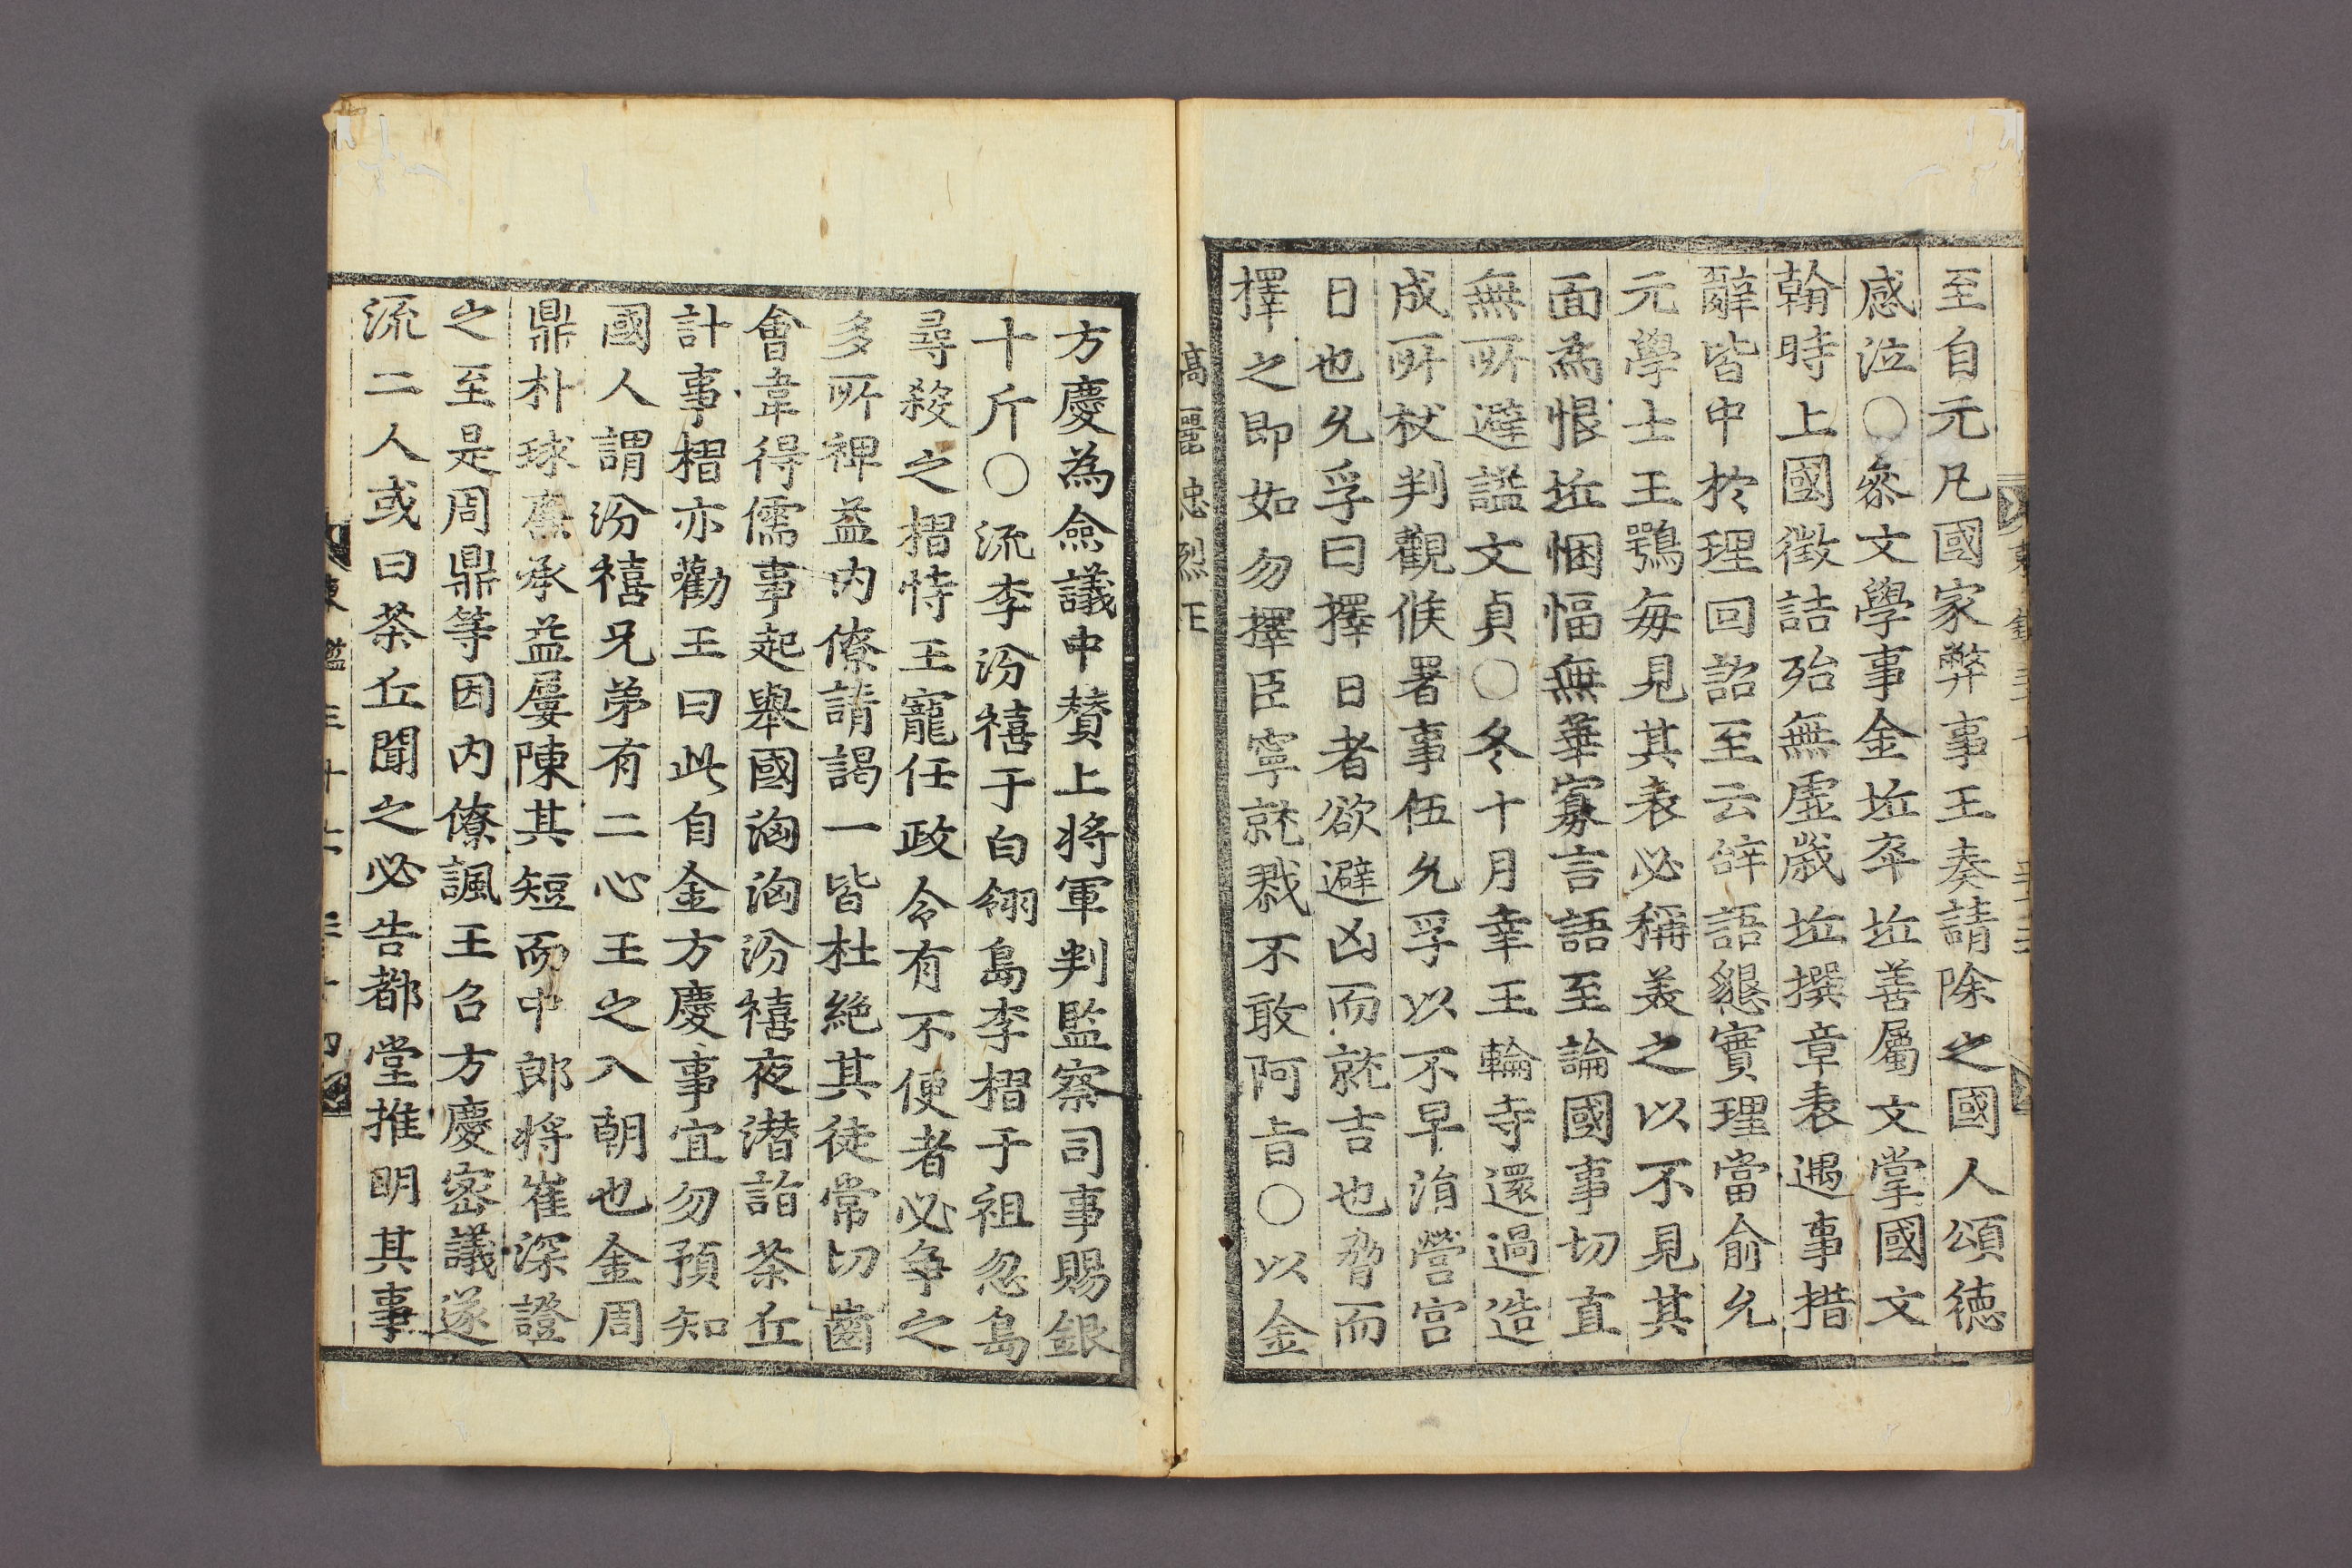 至自元凡國家弊事王奏請除之國人頌德
感泣○叅文學事金坵卒坵善屬文掌國文
翰時上國徵詰殆無虛歲坵撰章表遇事措
辭皆中於理回詔至云辭語懇實理當俞允
元學士王鶚每見其表必稱美之以不見其
面為恨坵悃愊無華寡言語至論國事切直
無所避謚文貞○冬十月幸王輪寺還過造
成所杖判觀候署事伍允孚以不早涓營宮
日也允孚曰擇日者欲避凶而就吉也脅而
擇之即如勿擇臣寧就戮不敢阿旨○以金
高麗忠烈王
方慶為僉議中贊上將軍判監察司事賜銀
十斤○流李汾禧于白翎島李槢于祖忽島
尋殺之槢恃王寵任政令有不便者必爭之
多所裨益內僚請謁一皆杜絕其徒常切齒
會韋得儒事起舉國洶洶汾禧夜潛詣茶丘
計事槢亦勸王曰此自金方慶事宜勿預知
國人謂汾禧兄弟有二心王之入朝也金周
鼎朴球廉承益屢陳其短而中郎將崔深證
之至是周鼎等因內僚諷王召方慶密議遂
流二人或曰茶丘聞之必告都堂推明其事